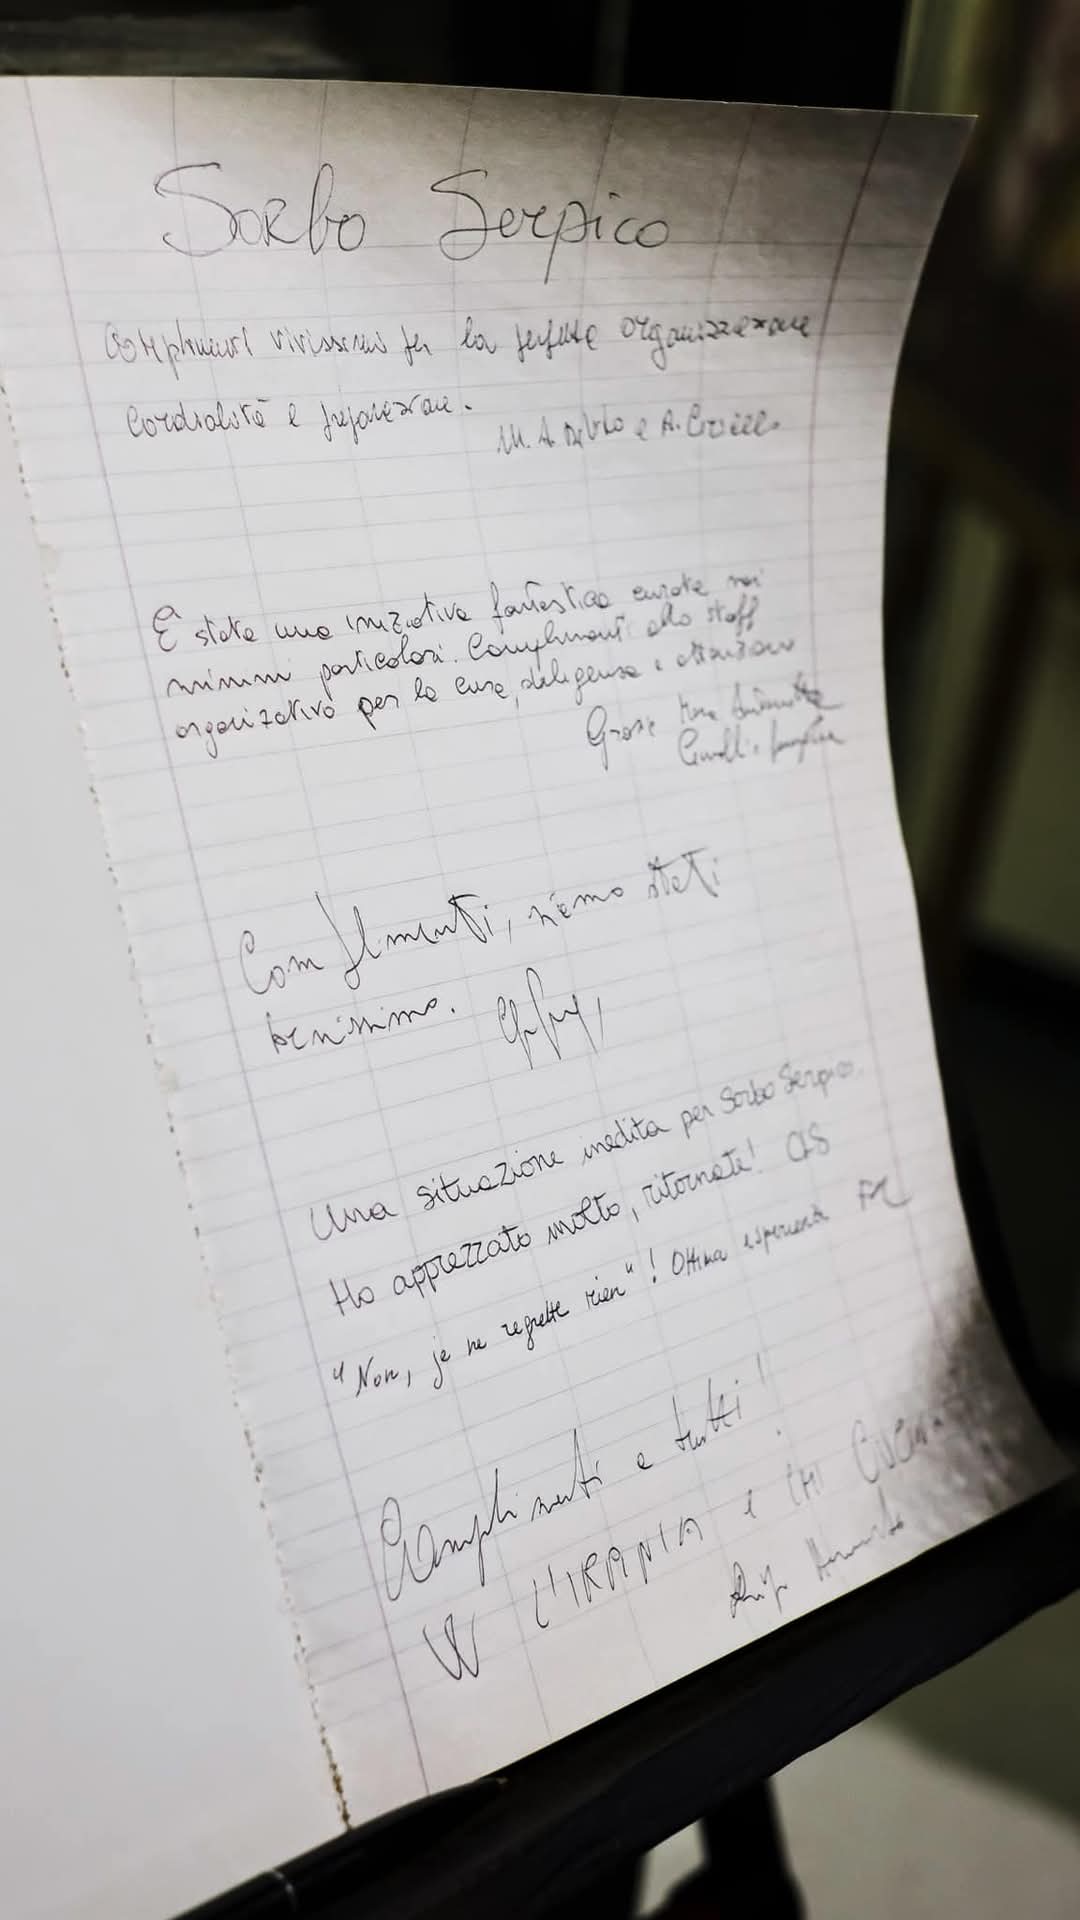 Sorbo Serpico
Complimenti vivissimi per la perfetta organizzazione
cordialità e preparazione.
M. A. e A.
È stata una iniziativa fantastica curata nei
minimi particolari. Complimenti allo staff
organizzativo per la cura, diligenza e attenzione
Grazie
Complimenti, siamo stati
benissimo.
Una situazione inedita per Sorbo Serpico.
Ho apprezzato molto, ritornate!
"Non, je ne regrette rien"! Ottima esperienza
Complimenti a tutti!
W L'IRPINIA e CHI CUCINA